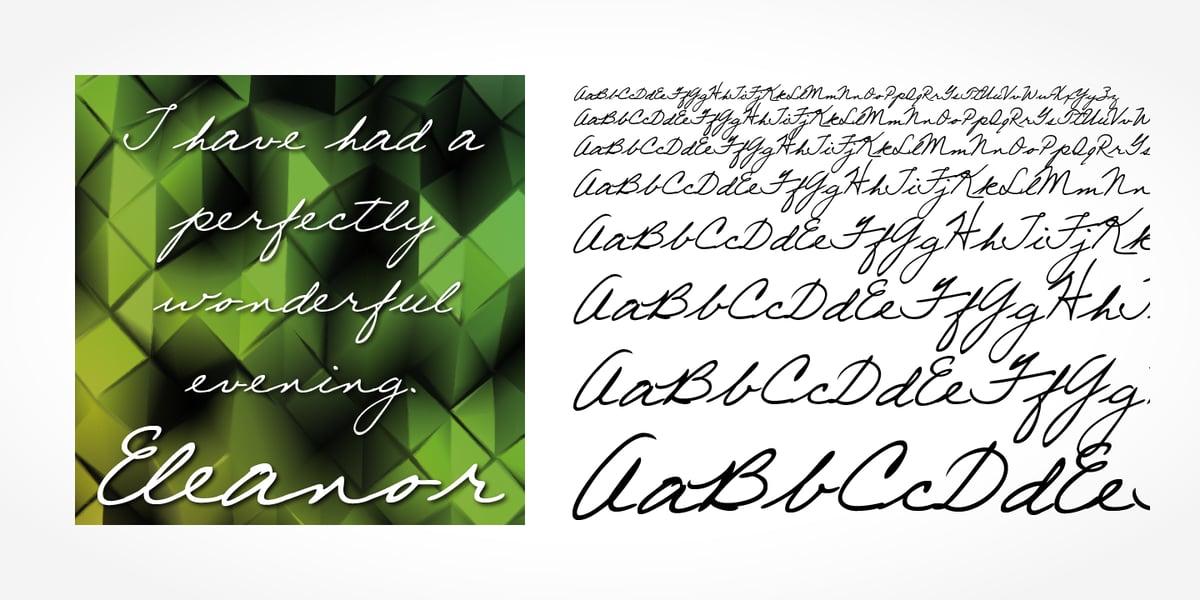 I have had a
perfectly
wonderful
evening.
Eleanor
AaBbCcDdEeFfGgHhIiJjKkLlMmNnOoPpQqRrSsTtUuVvWwXxYyZz
AaBbCcDdEeFfGgHhIiJjKkLlMmNnOoPpQqRrSsTtUuVvW
AaBbCcDdEeFfGgHhIiJjKkLlMmNnOoPpQqRrSs
AaBbCcDdEeFfGgHhIiJjKkLlMmNn
AaBbCcDdEeFfGgHhIiJjKk
AaBbCcDdEeFfGgHhi
AaBbCcDdEeFfGg
AaBbCcDdEe